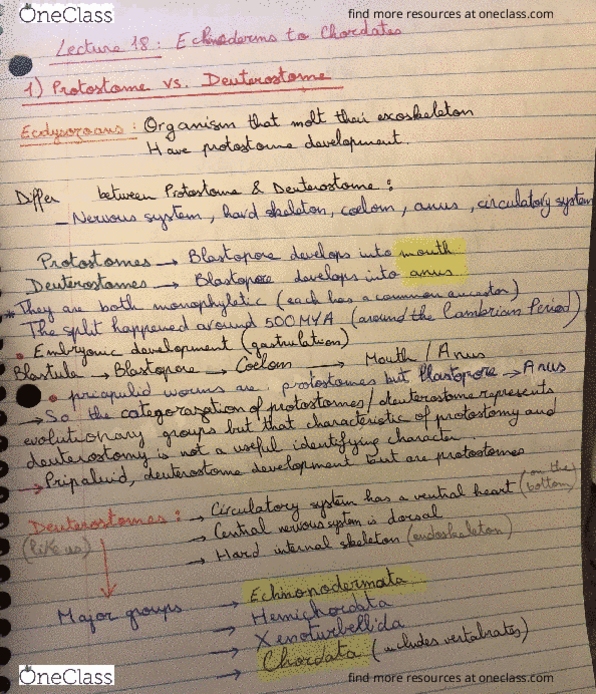 OneClass
find more resources at oneclass.com
Lecture 18: Echinoderms to Chordates
1) Protostome vs. Deuterostome
Ecdysozoans: Organism that molt their exoskeleton
Have protostome development.
Differ between Protostome & Deuterostome:
- Nervous system, hard skeleton, coelom, anus, circulatory system
Protostomes → Blastopore develops into mouth
Deuterostomes → Blastopore develops into anus
* They are both monophyletic (each has a common ancestor)
The split happened around 500MYA (around the Cambrian Period)
• Embryonic development (gastrulation)
Blastula → Blastopore → Coelom → Mouth / Anus
• priapulid worms are protostomes but blastopore → Anus
→ So the categorization of protostomes/deuterostome represents
evolutionary groups but that characteristic of protostomy and
deuterostomy is not a useful identifying character.
→ Pripaluid, deuterostome development but are protostomes
Deuterostomes: → Circulatory system has a ventral heart (on the bottom)
(like us) → Central nervous system is dorsal
→ Hard internal skeleton (endoskeleton)
Major groups → Echinonodermata
→ Hemichordata
→ Xenoturbellida
→ Chordata (includes vertabrates)
OneClass
find more resources at oneclass.com